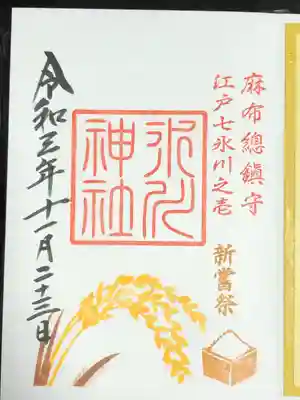 麻布總鎮守
江戸七氷川之壱
新嘗祭
氷川
神社
令和三年十一月二十三日